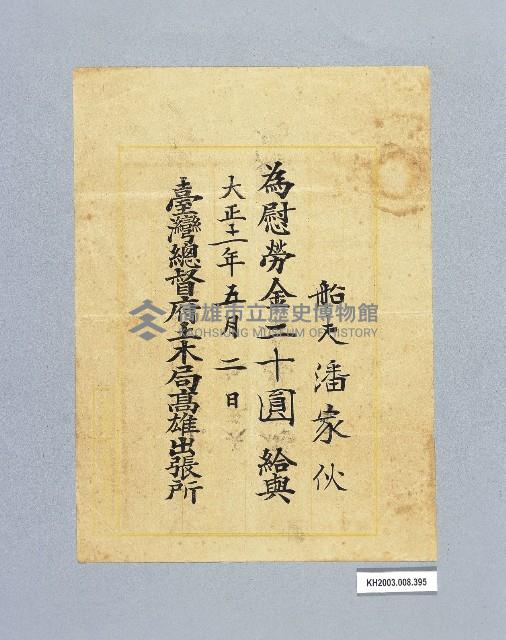 船夫潘家伙
為慰勞金三十圓給與
大正十一年五月二日
臺灣總督府土木局高雄出張所
高雄市立歷史博物館
KAOHSIUNG MUSEUM OF HISTORY
KH2003.008.395